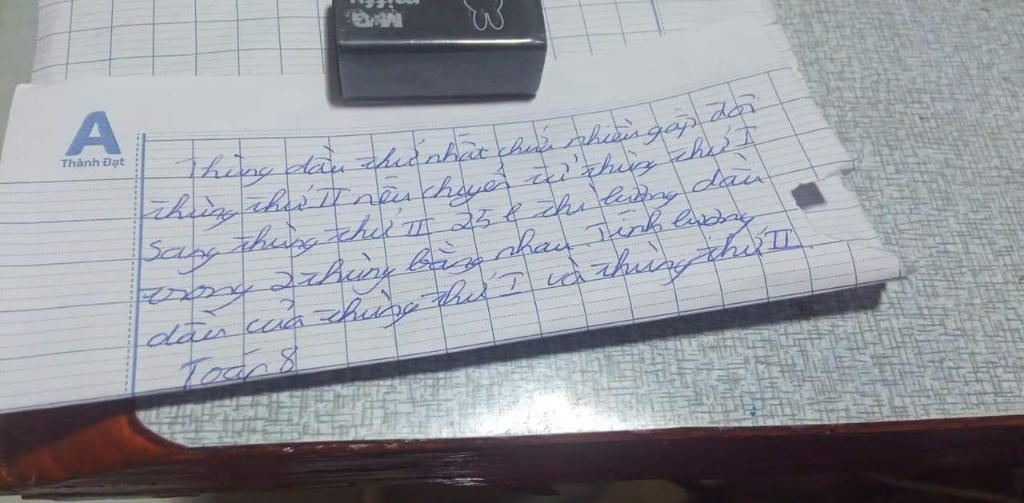 MiPO
miffy
A
Thành Đạt
Thùng dầu thứ nhất chứa nhiều gấp đôi
thùng thứ II nếu chuyển từ thùng thứ I
sang thùng thứ II 25 l thì lượng dầu
trong 2 thùng bằng nhau. Tính lượng
dầu của thùng thứ I và thùng thứ II.
Toán 8